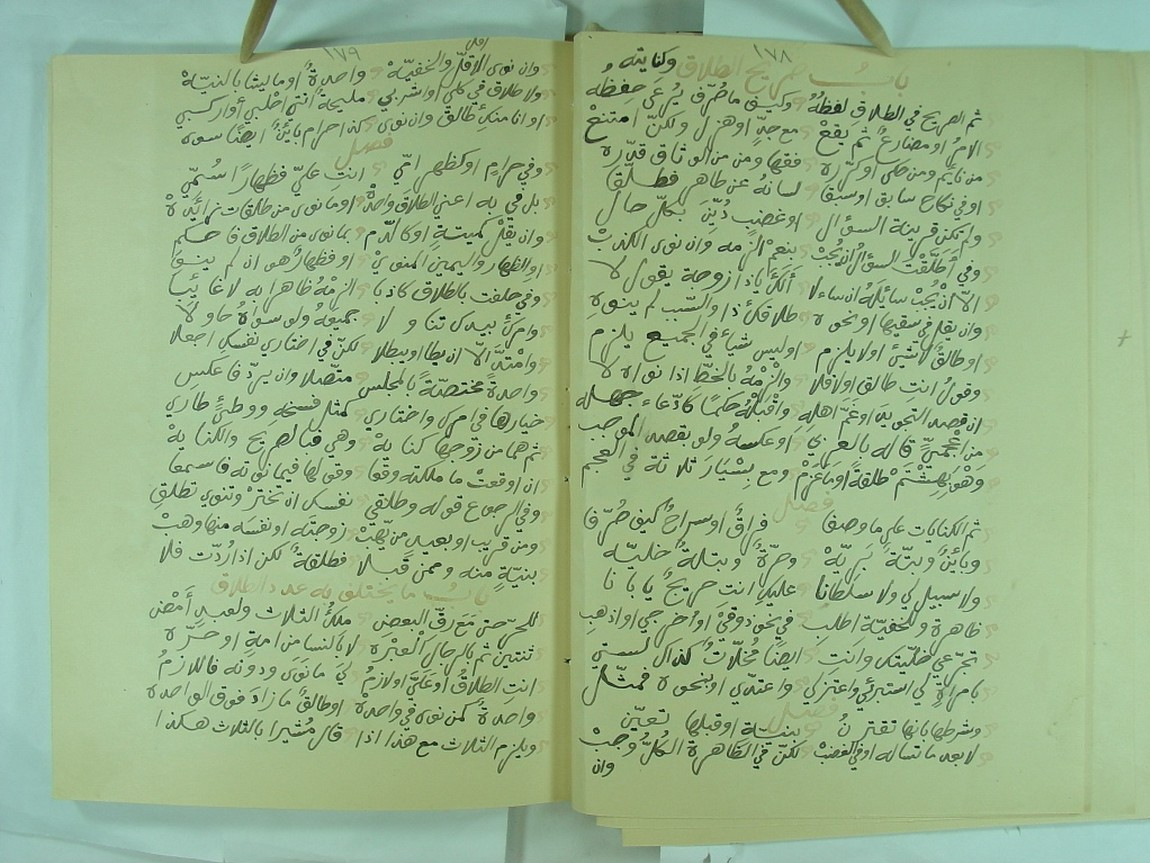 ١٧٨
باب صريح الطلاق وكنايته
ثم الصريح في الطلاق لفظه وكيف ما صرف يرعى حفظه
الامر او مضارعا ثم يقع مع جد او هزل ولكن امتنع
من نايم ومن حكى او كرره فقها ومن من الوثاق قدره
او في نكاح سابق او سبقا لسانه عن طاهر فطلقا
ولم تكن قرينة السؤال او غضب دين بكل حال
وفي أطلقت لسؤال ان يجب بنعم الزمه وان نوى الكذب
الا ان يجب سائله ان ساءلا ألك يا ذا زوجة يقول لا
وان يقل في سقيها او نحوه طلاقك ذا والسبب لم ينوه
او طالق لا شيئ او لا يلزم او ليس شيأ في الجميع يلزم
وقول انت طالق او لا فلا والزمه بالخط اذا نواه لا
ان قصد التجويد او غم اهله واقبله حكما كادعاء جهله
من اعجمي قاله بالعربي او عكسه ولو بقصد الموجب
وهو بهشتم طلقة او ما عزم ومع بسيار ثلاثة في العجم
فصل
ثم الكنايات على ما وصفا فراق او سراح كيف صرفا
وبائن وبتة برية وحرة وبتلة خلية
ولا سبيل لي ولا سلطانا عليك انت حريج يا بانا
ظاهرة وللخفية اطلب في نحو ذوقي او اخرجي او اذهبي
تجرعي خليتك وانت ايضا مخلات كذاك لست
بامرأة لي استبرئي واعتزلي واعتدي او بنحوه فمثل
فصل
وشرطها بانها تقترن بنية او قبلها تعين
لا بعد ما تساله او في الغضب لكن في الظاهرة الكل وجب
وان
١٧٩
وان نوى الاقل والخفية واحدة او ما يشا بالنية
ولا طلاق في كلي او اشربي مليحة انت اجلبي أو اركبي
او انا منك طالق وان نوى كذا حرام بائن ايضا سوى
فصل
وفي حرام او كظهر امي انت علي فظهارا سمي
بل في به اعني الطلاق واحدة او ما نوى من طلقات زائدة
وان يقل كميتة او كالدم بما نوى من الطلاق فاحكم
او الظهار واليمين المنوي او فظهار هو ان لم ينو
وفي حلفت بالطلاق كاذبا الزمه ظاهرا به لا غائبا
وامرك بيدك تناولا جميعه ولو سواه حاولا
وامتد الا ان يطا او يبطلا لكن في اختاري نفسك اجعلا
واحدة مختصة بالمجلس متصلا وان يرد فاعكس
خيارها في امرك واختاري كمثل فسخه ووطئ طاري
ثم هما من زوجها كناية وهي فبالصريح والكناية
ان اوقعت ما ملكته وقعا وقولها فيما نوته فاسمعا
وفي الرجوع قوله وطلقي نفسك ان تختر وتنوي تطلق
ومن قريب او بعيد من يهب زوجته او نفسه منها وهب
بنية منه وممن قبلا فطلقة لكن اذا ردت فلا
باب ما يختلف به عدد الطلاق
للحر حتى مع رق البعض ملك الثلاث ولعبد أمض
ثنتين ثم بالرجال العبرة لا بالنسا من امة او حرة
انت الطلاق أو علي او لازم لي ما نوى ودونه فاللازم
واحدة كمن نوى في واحدة او طالق ما زاد فوق الواحدة
ويلزم الثلاث مع هذا اذا قال مشيرا بالثلاث هكذا